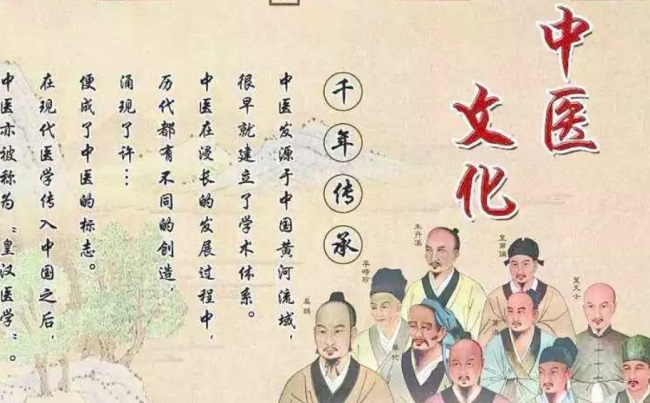 中医
文化
千年传承
中医发源于中国黄河流域，
很早就建立了学术体系。
中医在漫长的发展过程中，
历代都有不同的创造，
涌现了许…
便成了中医的标志。
在现代医学传入中国之后，
中医亦被称为“皇汉医学”。
朱丹溪
皇甫谧
葉天士
李時珍
扁鵲
華佗